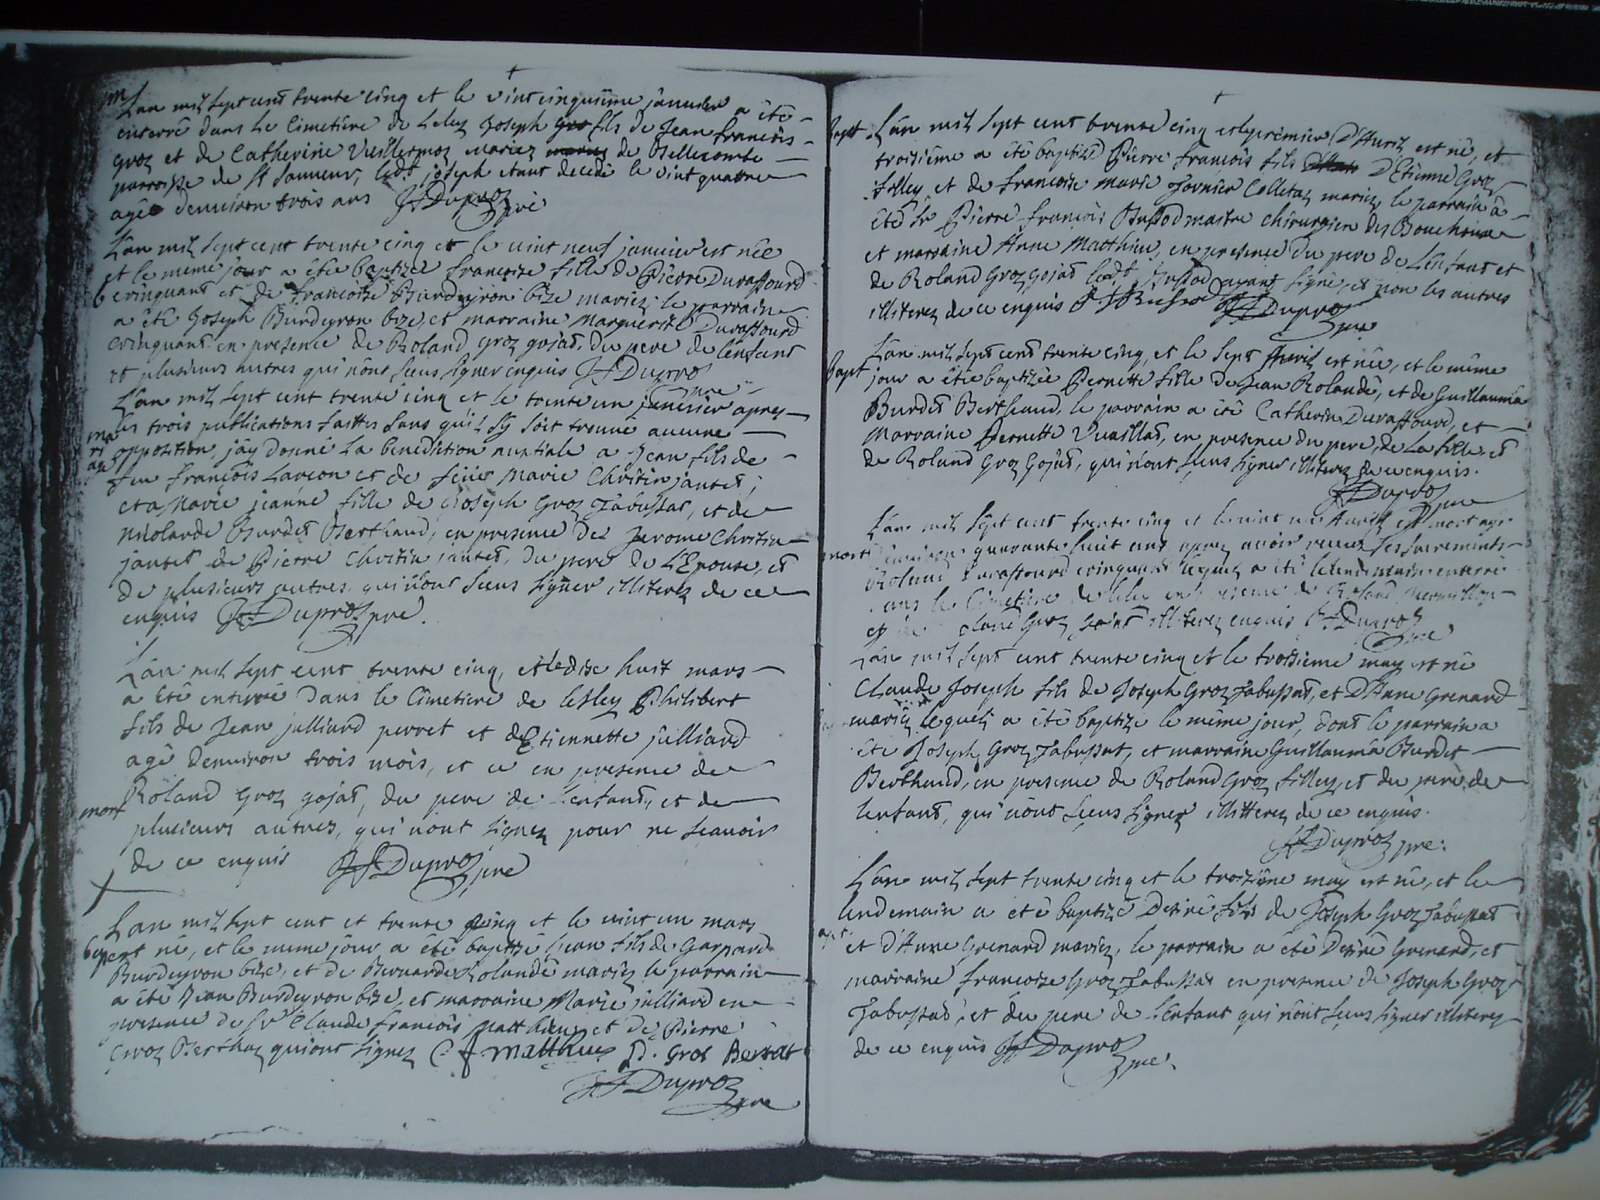 Lan mil sept cent trente cinq et le vint cinquiême janvier a êté
enterré dans Le Cimetiére de Leley Joseph fils de Jean francois
groz et de Catherine Vuillermoz mariez de Bellecombe
parroisse de St Sauveur, led joseph etant decedé le vint quatre
agé denviron trois ans JJ Duproz pre
Lân mil sept cent trente cinq et le vint neuf janvier est née
et le meme jour a étée baptizée francoise fille de Pierre Duraffourd
et de francoise Burdeyron bize mariez; le parrain
a êté Joseph Burdeyron bize, et marraine Marguerite Duraffourd
en presence de Roland groz gojat, du pere de lenfant
et plusieurs autres qui nônt sceus signer enquis JJ Duproz
pre
Lan mil sept cent trente cinq et le trente un janvier apres
mariage
les trois publications faittes sans qu'il sÿ soit treuvé aucune
opposition, jaÿ donné La benediction nuptiale a Jean fils de
feu francois Lancon et de Marie Christin jantet;
et a Marie jeanne fille de Joseph Groz Jabussat, et de
Nicolarde Burdet Berthaud; en presence de Jerome Christin
jantet de Pierre Christin jantet, du pere de L'Epouse, et
de plusieurs autres qui n'ont sceus signer illiterez de ce
enquis JJ Duproz pre.
Lân mil sept cent trente cinq, et le dise huit mars
a êté enterré Dans le Cimetiere de lesley Philibert
fils de Jean julliard perret et de Etiennette julliard
agé denviron trois mois, et ce en presence de
Roland Groz gojat, du pere de lenfant, et de
mort
plusieurs autres, qui nônt signez pour ne sçavoir
de ce enquis JJ Duproz pre
Lan mil sept cent et trente cinq et le vint un mars
est né, et le meme jour a êté baptizé Jean fils de Gaspard
Burdeyron bize, et de Bernarde Rolandé mariez le parrain
a êté Jean Burdeyron bize, et marraine Marie julliard en
presence de Sr Claude francois Matthieu et de Pierre
Groz Berthaz qui ont signez C f matthieu P. Gros Bertat
JJ Duproz
pre
Bapt
Lân mil sept cent trente cinq et le premier D'Avril est né, et
troisiême a êté baptizé Pierre francois fils D'Etienne Groz
filley et de francoise marie fournier Colletaz mariez, le parrain â
êté Sr Pierre francois Bussod maitre chirurgien des Bouchoux
et marraine Anne Matthieu, en presence du pere de Lenfant et
de Roland Groz Gojat led Bussod ayant signé, et non les autres
illiterez de ce enquis JJ Duproz
pre
Bapt
Lân mil sept cent trente cinq, et le sept Avril est née, et le même
jour a êtée baptizée Pernette fille de Jean Rolandé, et de Guillauma
Burdet Berthaud, le parrain a êté Catherin Duraffourd, et
Marraine Pernette Vuaillat, en presence du pere, de La fille, et
de Roland Groz Gojat, qui n'ont sceus signer illiterez de ce enquis.
JJ Duproz
pre
Lân mil sept cent trente cinq et le vint Avril est mort agé
mort
denviron quarante huit ans apres avoir receu les sacrements
Roland Duraffourd lequel a êté le lendemain enterré
dans le Cimetiere de leley en presence de Roland
et Groz illiterez enquis JJ Duproz
pre
Lân mil sept cent trente cinq et le troisieme may est né
Claude Joseph fils de Joseph Groz Jabussat, et D'Anne Grenard
mariez lequel a êté baptize le même jour, dont le parrain a
êté Joseph Groz Jabussat, et marraine Guillauma Burdet
Berthaud, en presence de Roland Groz filley, et du pere de
lenfant, qui nônt sceus signer illitterez de ce enquis.
JJ Duproz pre.
Lân mil sept trente cinq et le troisiême may est né, et le
lendemain a eté baptizé Desiré fils de Joseph Groz Jabussat
et d'Anne Grenard mariez, le parrain a êté Desiré Grenard, et
marraine francoise Groz Jabussat en presence de Joseph Groz
Jabussat, et du pere de lenfant qui nônt sceus signer illiterez
de ce enquis JJ Duproz
pre.